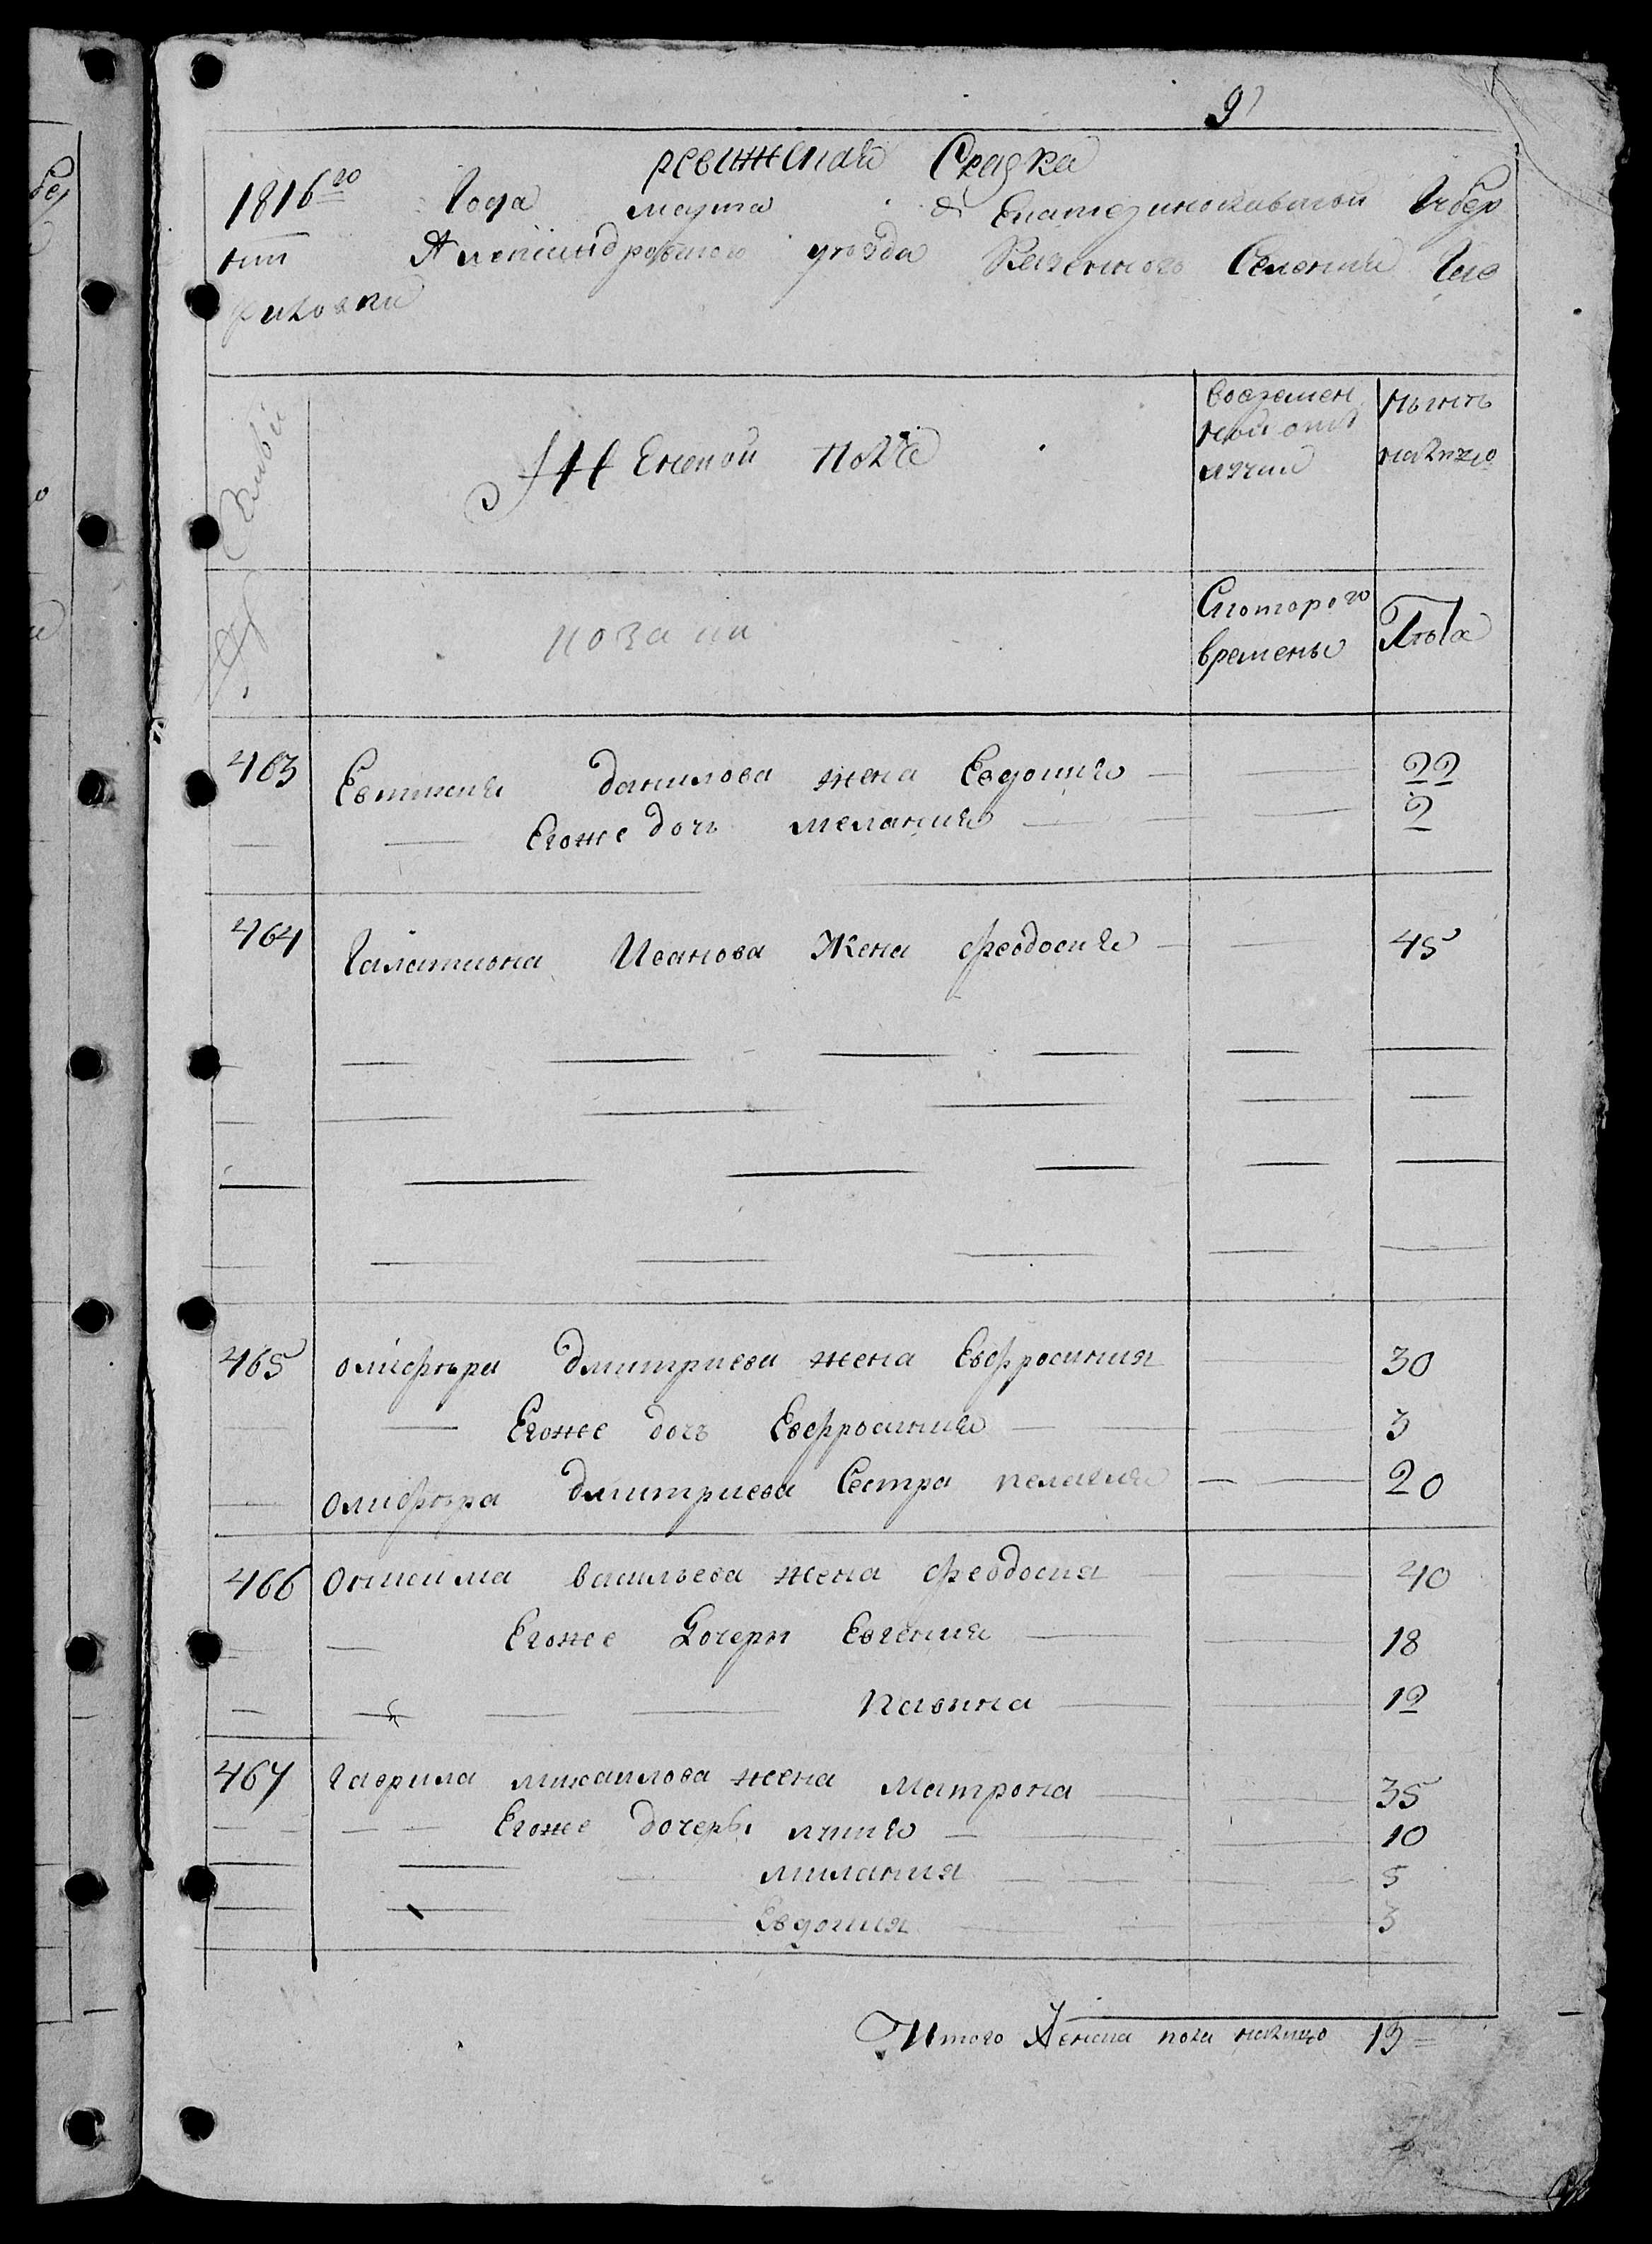 9
ревижская Сказка
1816го Года марта Екатеринославской Губер
нии Александровского уезда Казенного Селения Гав
риловки
Женской полъ
вовремен
ной отл
учки
ныне
налицо
Скоторого
времены
Лѣта
463 Евтихия данилова жена Евдокия 22
Егоже дочь мелания 2
464 Галатиона Иванова Жена феодосия 45
465 олифѣра дмитриева жена Евфросиния 30
Егоже дочь Евфросиния 3
олифѣра дмитриева Сестра пелагия 20
466 Онисима васильева жена феодосия 40
Егоже Дочери Евгения 18
павина 12
467 гаврила михаилова жена матрона 35
Егоже дочеры 10
милания 5
Евдокия 3
Итого Женска пола налицо 13